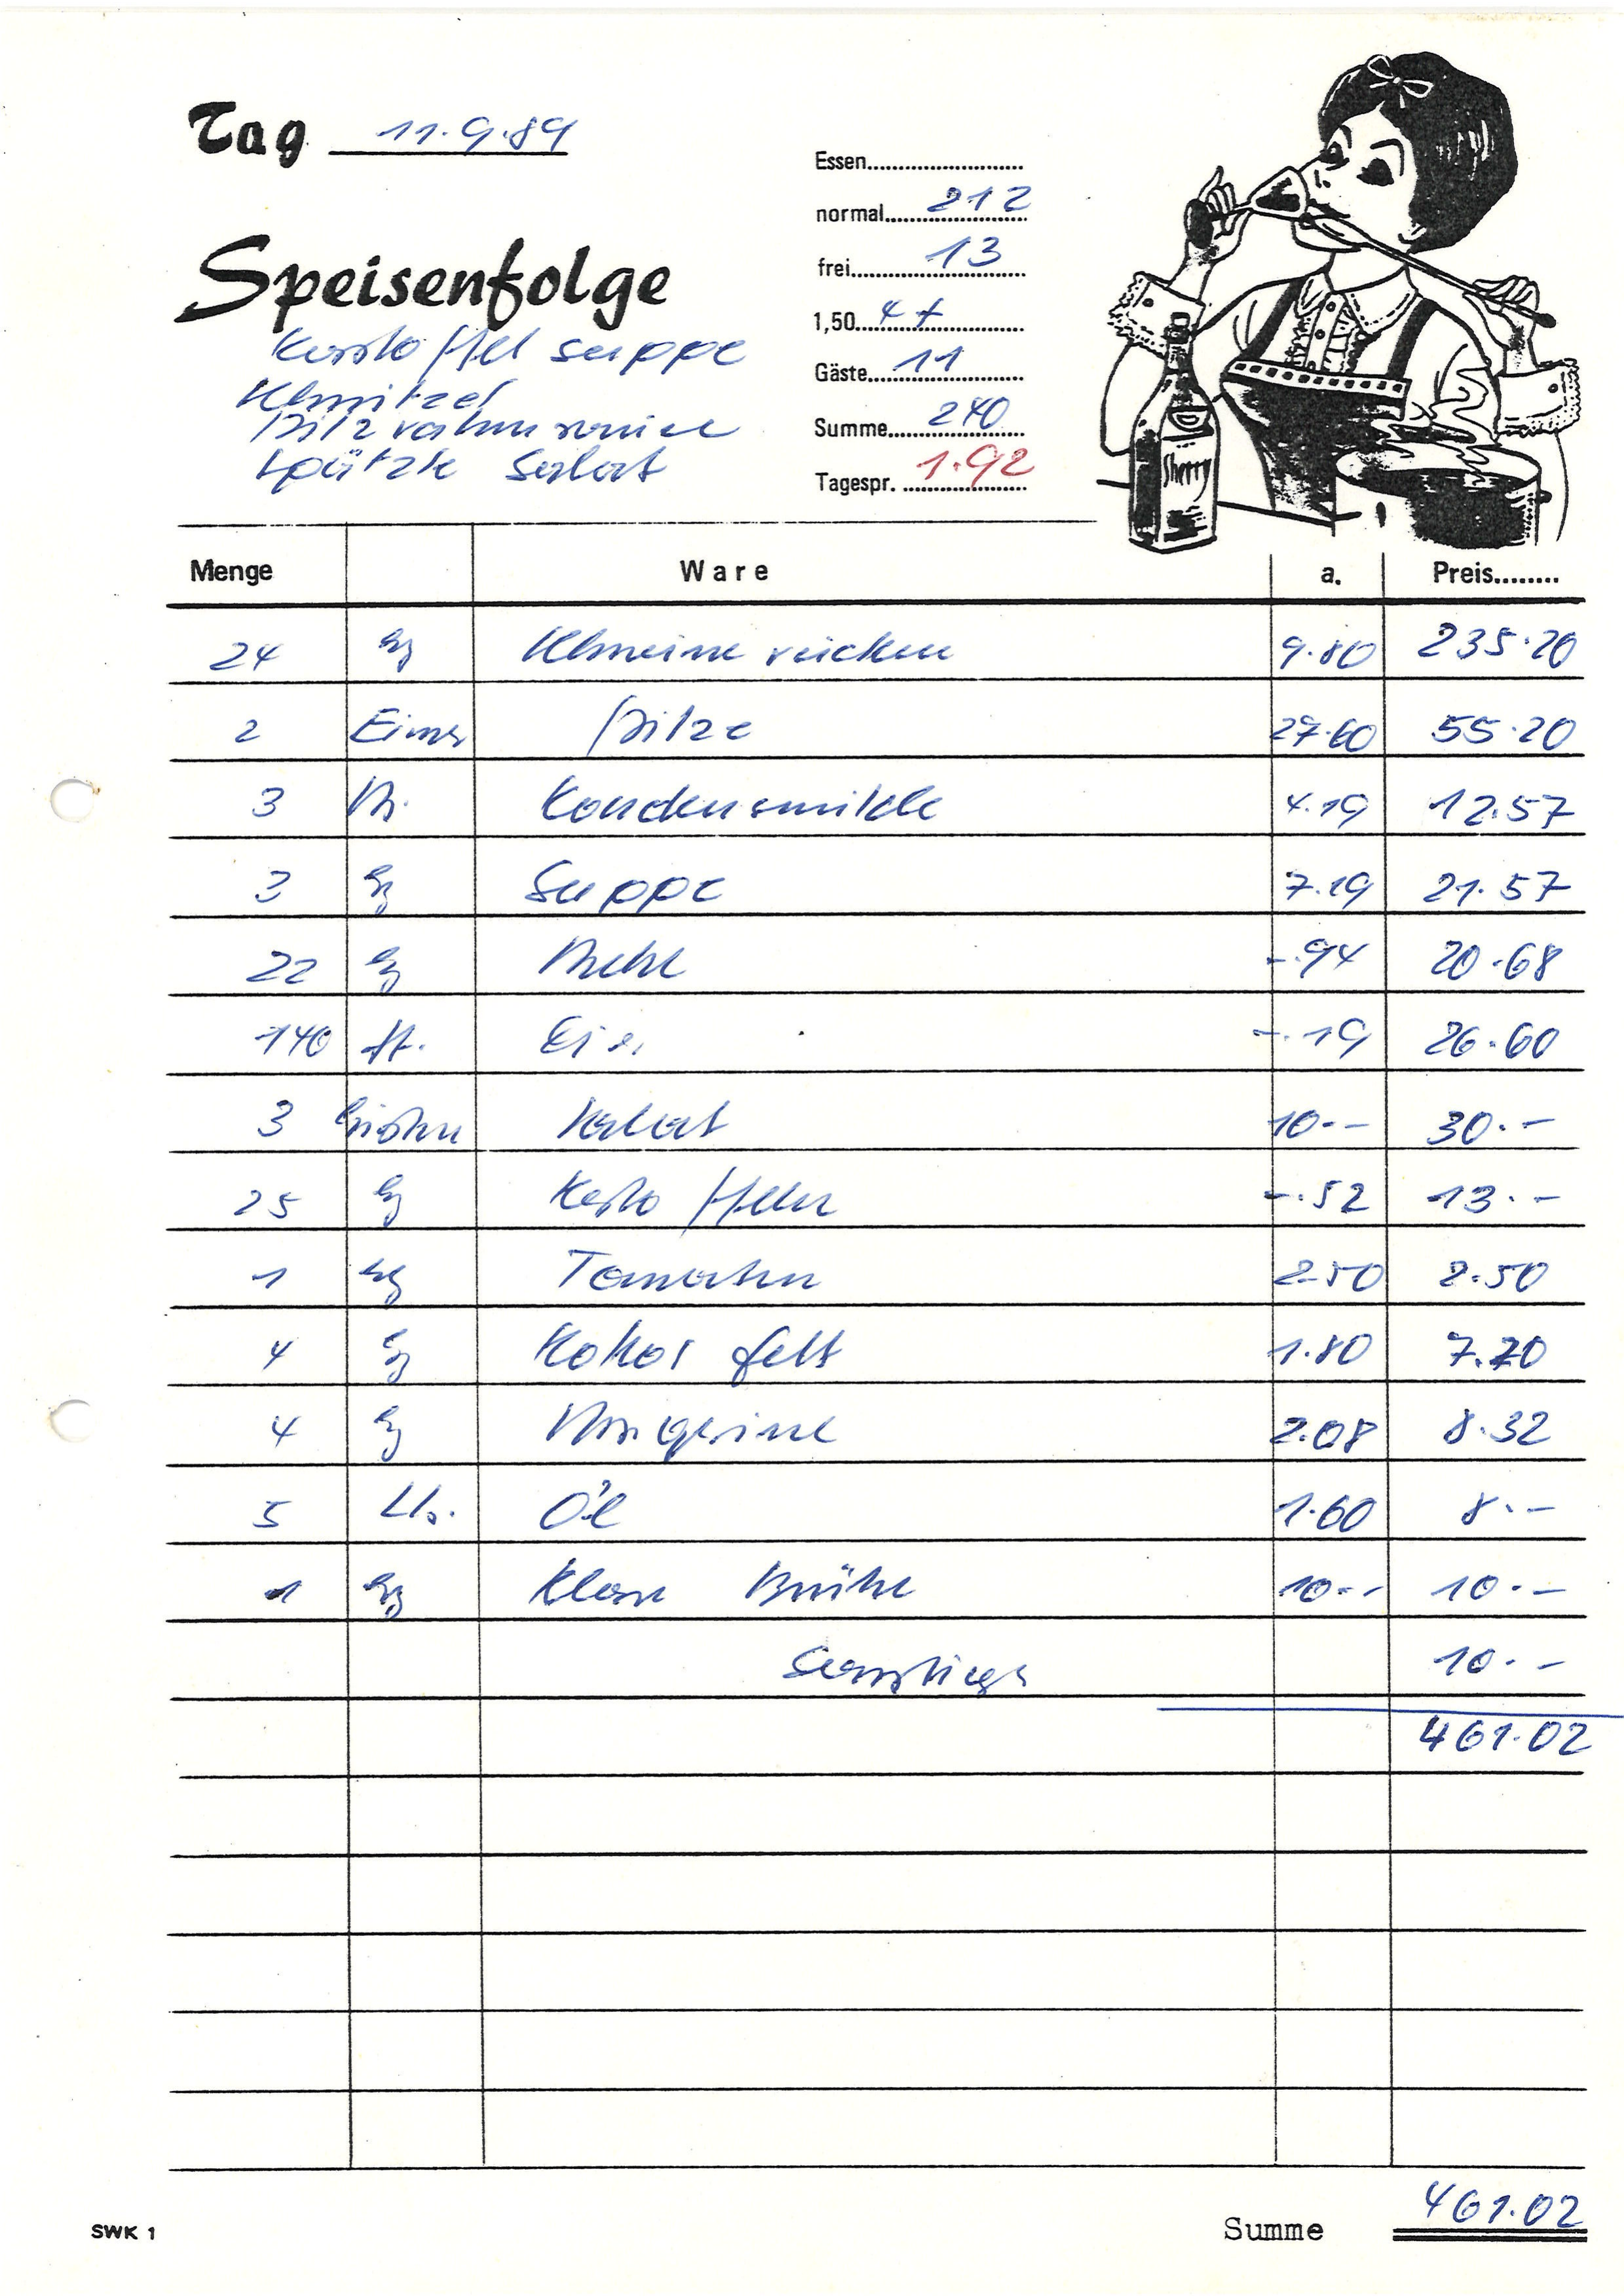 Tag 11.9.89
Essen
normal 212
frei 13
1,50 4 +
Gäste 11
Summe 240
Tagespr. 1.92
Speisenfolge
Kartoffel suppe
Schnitzel
Pilzrahmsauce
Spätzle Salat
Sherry
Menge Ware a. Preis
24 kg Schweinerücken 9.80 235.20
2 Eimer Pilze 27.60 55.20
3 Kondensmilch 4.19 12.57
3 kg Suppe 7.19 21.57
22 kg Mehl -.94 20.68
140 St. Eier -.19 26.60
3 Kisten Salat 10.- 30.-
25 kg Kartoffeln -.52 13.-
1 kg Tomaten 2.50 2.50
4 kg Kokosfett 1.80 7.20
4 kg Margarine 2.08 8.32
5 Ltr. Öl 1.60 8.-
1 kg Klare Brühe 10.- 10.-
Sonstiges 10.-
461.02
SWK 1 Summe 461.02